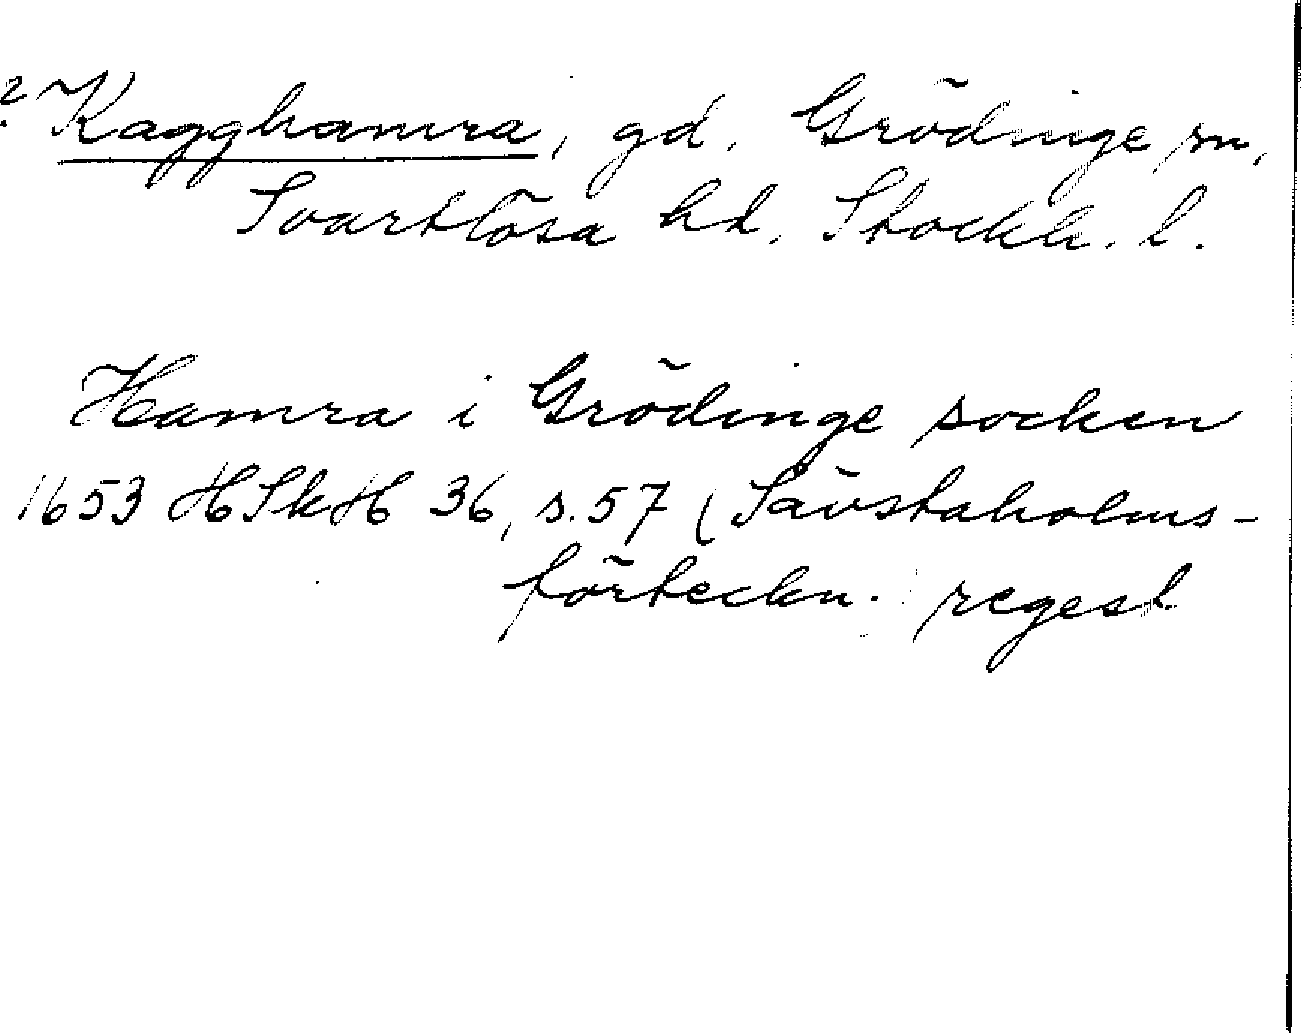 ? Kagghamra, gd, Grödinge sn,
Svartlösa hd, Stockh. l.
Hamra i Grödinge socken
1653 HSkH 36, s. 57 (Sävstaholms-
förteckn. regest